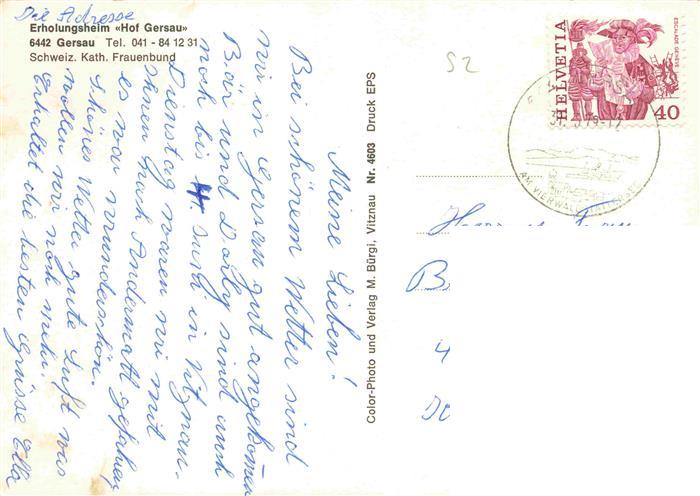 Die Adresse
Erholungsheim «Hof Gersau»
6442 Gersau Tel. 041 - 84 12 31
Schweiz. Kath. Frauenbund
Meine Lieben!
Bei schönem Wetter sind
wir in Gersau gut angekommen
Bäsi und Dorly sind auch
noch bis 4. Juni in Vitznau.
Dienstag waren wir mit
ihnen nach Andermatt gefahren,
es war wunderschön.
Schönes Wetter gute Luft was
wollen wir noch mehr.
Erhaltet die besten Grüsse Ella
Color-Photo und Verlag M. Bürgi, Vitznau Nr. 4603 Druck EPS
52
HELVETIA
ESCALADE GENÈVE
40
AM VIERWALDSTÄTTERSEE
B
4